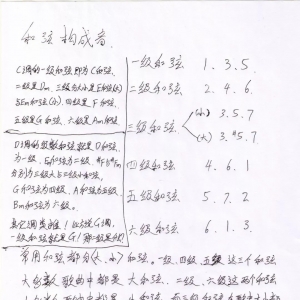 和弦构成音
C调的一级和弦即为C和弦、
二级是Dm、三级分大小是E和弦(大)
与Em和弦(小)、四级是F和弦、
五级是G和弦、六级是Am和弦
D调的级数和弦就是D和弦、
为一级、E和弦为二级、#F与#Fm
分别为三级大与三级小和弦、
G和弦为四级、A和弦为五级
Bm和弦为六级。
其它调类推！比如说G调、
一级和弦就是G！那二级是
一级和弦 1. 3. 5.
二级和弦 2. 4. 6.
三级和弦
(小) 3. 5. 7
(大) 3. #5. 7
四级和弦 4. 6. 1
五级和弦 5. 7. 2
六级和弦 6. 1. 3
常用和弦部分(大、小)和弦。一级、四级、五级 这三个和弦
大多数歌曲中都是 大和弦、二级、六级这两个和弦